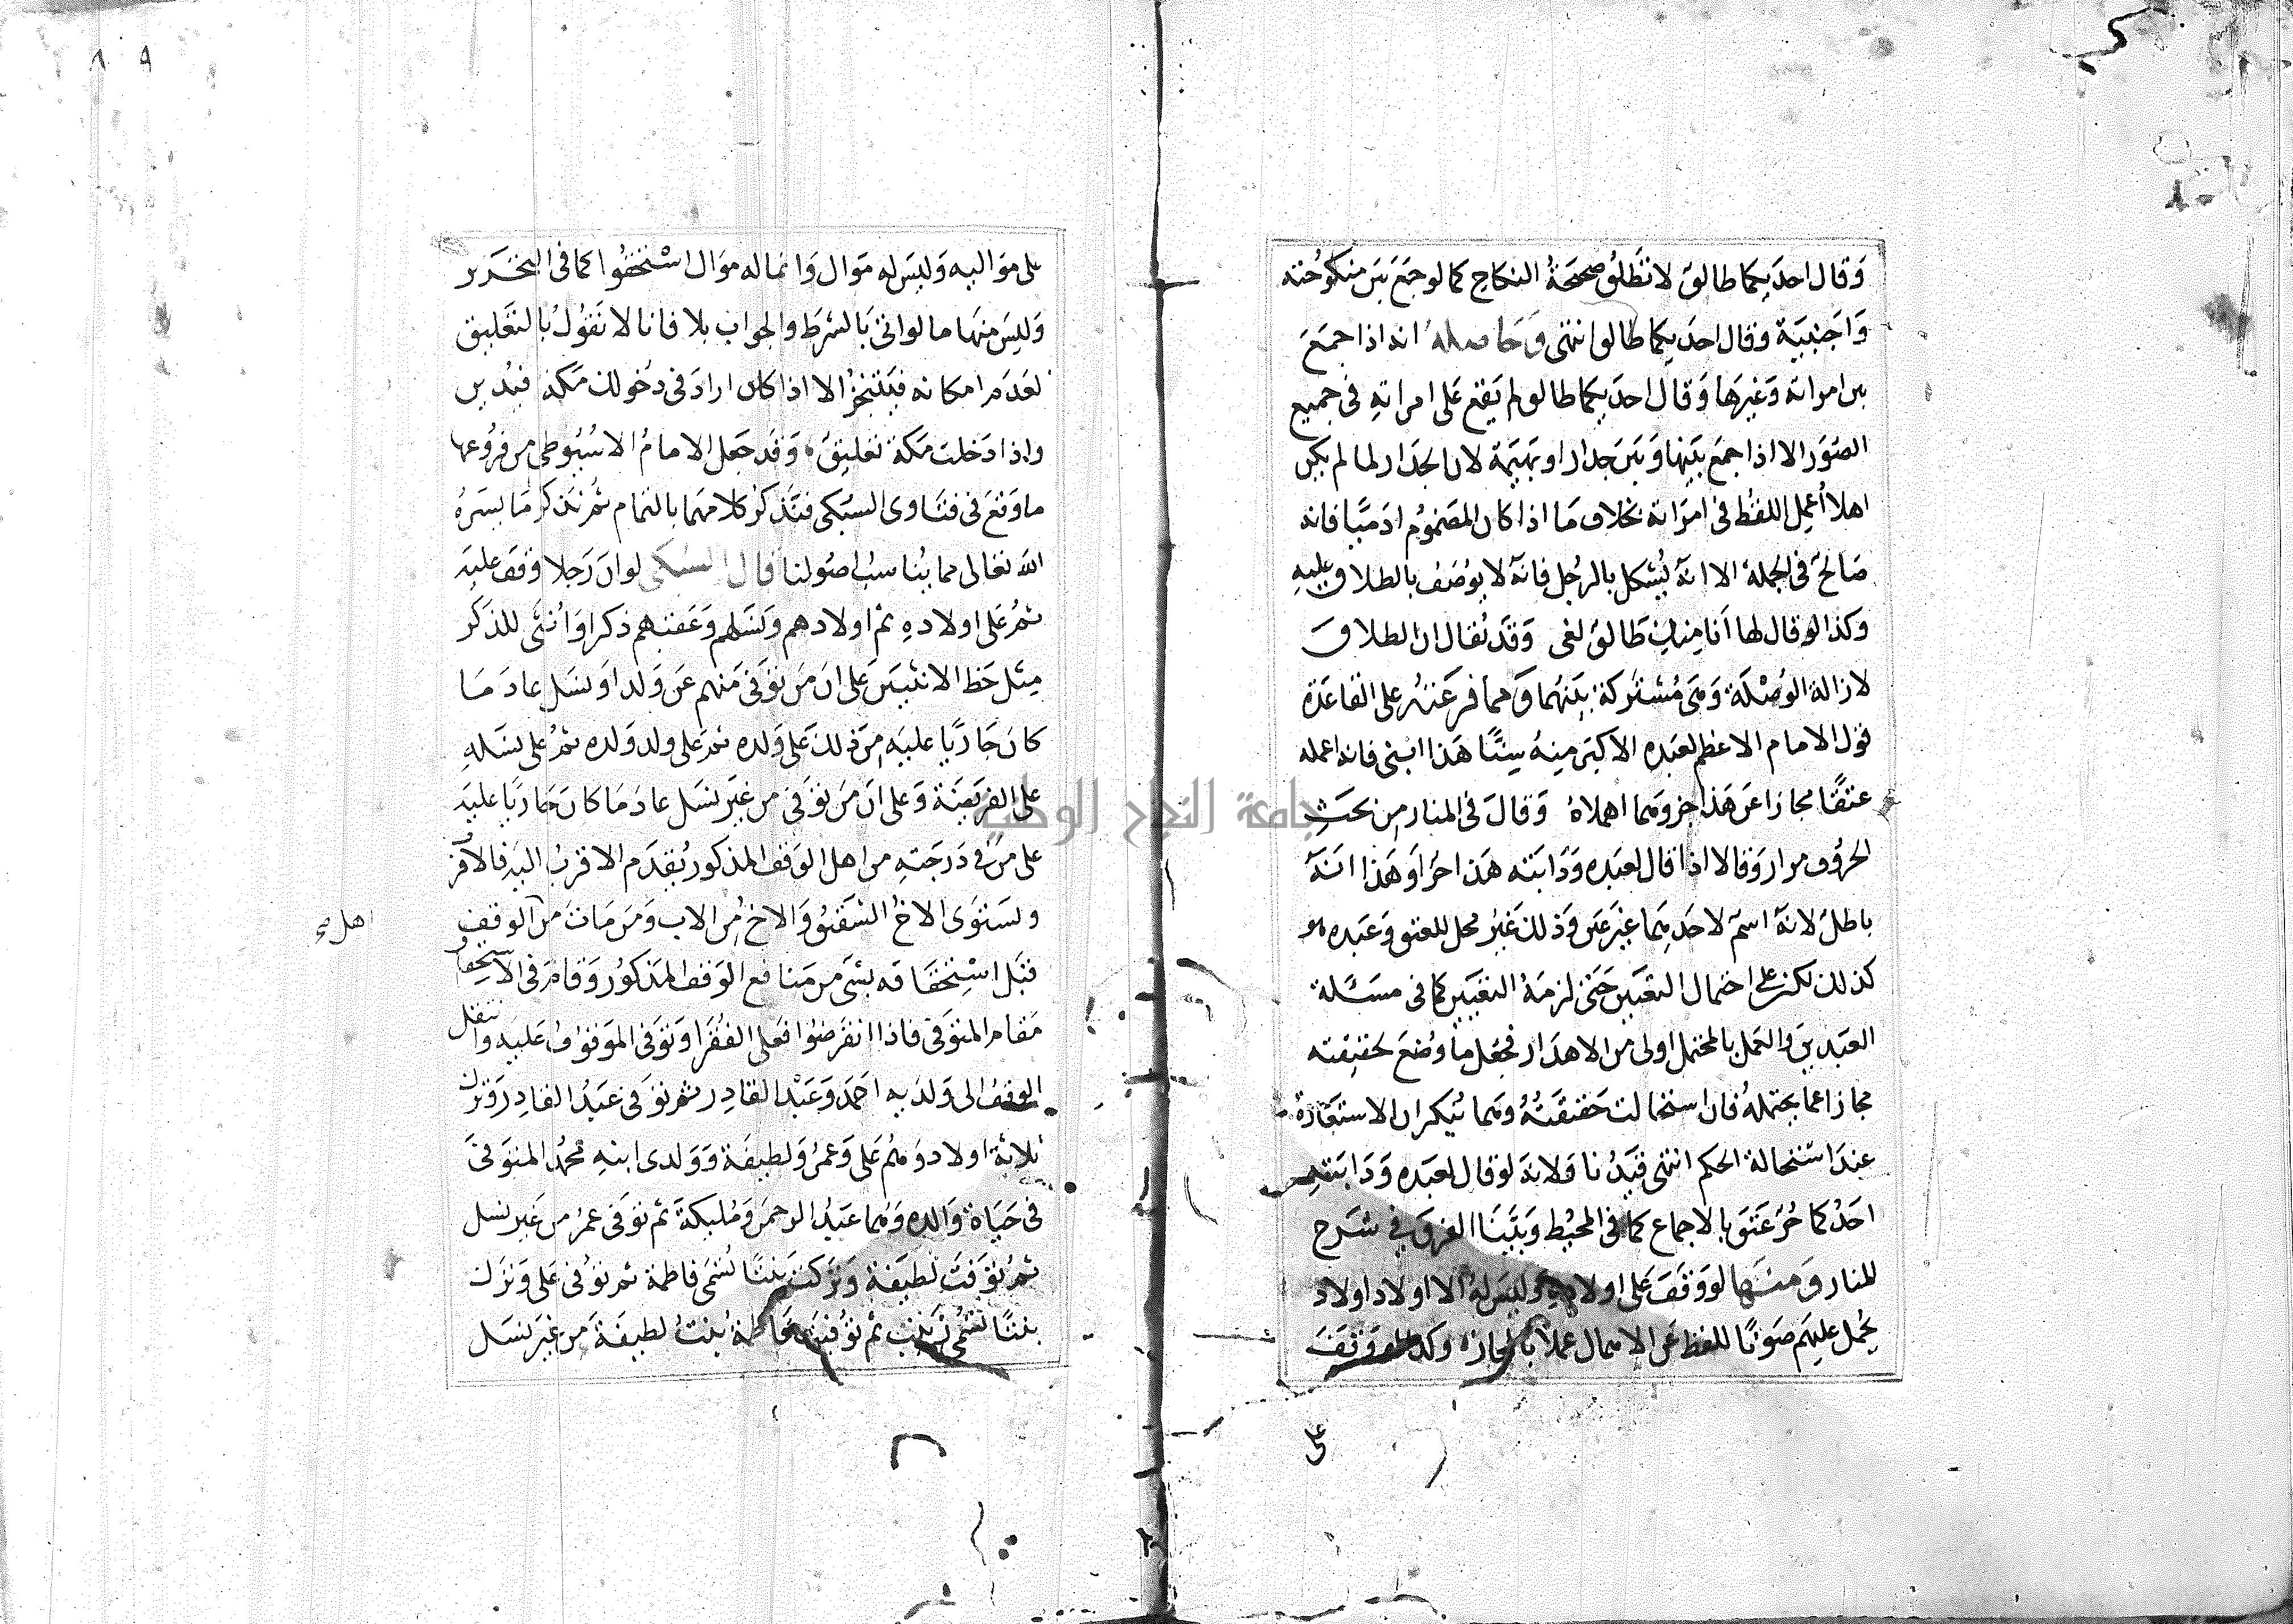 وقال احديكما طالق لا تطلق صحة النكاح كما لو جمع بين منكوحته
واجنبية وقال احديكما طالق انتهى وحاصله انه اذا جمع
بين امراته وغيرها وقال احديكما طالق لم يقع على امراته في جميع
الصور الا اذا جمع بينها وبين جدار او بهيمة لان الجدار لما لم يكن
اهلا أعمل اللفظ في امراته بخلاف ما اذا كان المضموم ادميا فانه
صالح في الجملة الا انه يشكل بالرجل فانه لا يوصف بالطلاق عليه
وكذا لو قال لها أنا منك طالق لغى وقد يقال ان الطلاق
لازالة الوصلة وهي مشتركة بينهما ومما فرعته على القاعدة
قول الامام الاعظم لعبده الاكبر منه سنًا هذا ابني فانه اعمله
عتقًا مجازا عن هذا حر وهما اهملاه وقال في المنار من بحث
الحروف من او وقالا اذا قال لعبده ودابته هذا حر او هذا انه
باطل لانه اسم لاحدهما غير عين وذلك غير محل للعتق وعبده هو
كذلك لكن على احتمال التعيين حتى لزمه التعيين كما في مسئلة
العبدين والعمل بالمحتمل اولى من الاهدار فجعل ما وضع لحقيقته
مجازا عما يحتمله فان استحالت حقيقته وهما ينكران الاستعارة
عند استحالة الحكم انتهى قيدنا ولانه لو قال لعبده ودابته
احدكما حر عتق بالاجماع كما في المحيط وبينا الفرق في شرح
المنار ومنها لو وقف على اولاده وليس له الا اولاد اولاد
يحمل عليهم صونًا للفظ عن الاهمال عملا بالمجاز وكذا لو وقف
على
على مواليه وليس له موال وانما له موال استحقوا كما في التحرير
وليس منها ما لو اتى بالشرط والجواب بلا فا فانا لا نقول بالتعليق
لعدم امكانه فيتنجز الا اذا كان اراد في دخولك مكة فيدين
واذا دخلت مكة تعليق وقد جعل الامام الاسيوطي من فروعها
ما وقع في فتاوى السبكي فنذكر كلامهما بالتمام ثم نذكر ما يسره
الله تعالى مما يناسب اصولنا قال السبكي لو ان رجلا وقف عليه
ثم على اولاده ثم اولادهم ونسلهم وعقبهم ذكرا وأنثى للذكر
مثل حظ الانثيين على ان من توفى منهم عن ولد او نسل عاد ما
كان جاريا عليه من ذلك على ولده ثم على ولد ولده ثم على نسله
على الفريضة وعلى ان من توفى من غير نسل عاد ما كان جاريا عليه
على من في درجته من اهل الوقف المذكور يقدم الاقرب اليه فالاقرب
ويستوى الاخ الشقيق والاخ من الاب ومن مات من الوقف
اهل
قبل استحقاقه بشئ من منافع الوقف المذكور وقام في الاستحقاق
مقام المتوفى فاذا انقرضوا فعلى الفقرا وتوفى الموقوف عليه وانتقل
الوقف الى ولديه احمد وعبد القادر ثم توفى عبد القادر وترك
ثلاثة اولاد وهم على وعمر ولطيفة وولدى ابنه محمد المتوفى
في حياة والده وهما عبد الرحمن ومليكة ثم توفى عمر من غير نسل
ثم توفيت لطيفة وتركت بنتًا تسمى فاطمة ثم توفى على وترك
بنتًا تسمى زينب ثم توفيت فاطمة بنت لطيفة من غير نسل
جامعة النجاح الوطنية